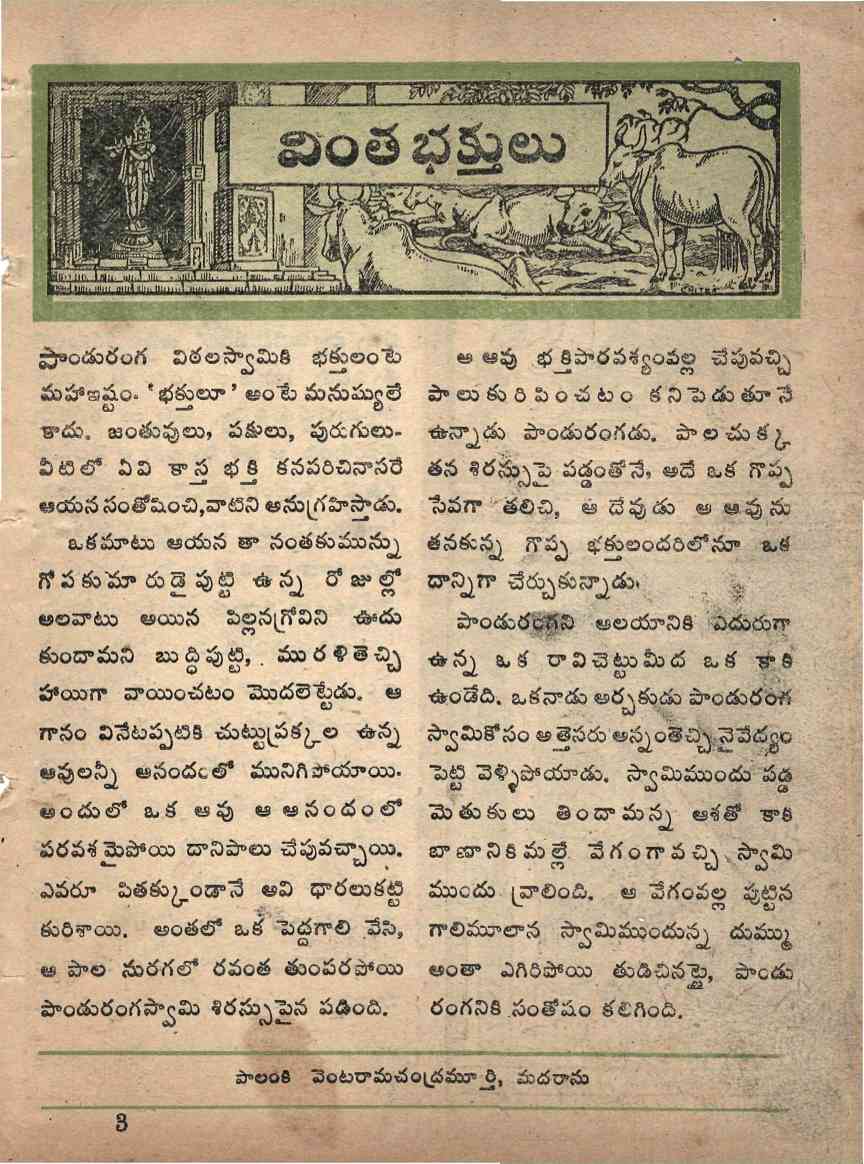 వింత భక్తులు
CHITRA
పాండురంగ విఠలస్వామికి భక్తులంటె
మహాఇష్టం. 'భక్తులూ' అంటే మనుష్యులే
కాదు. జంతువులు, పక్షులు, పురుగులు-
వీటిలో ఏవి కాస్త భక్తి కనపరిచినాసరే
ఆయన సంతోషించి, వాటిని అనుగ్రహిస్తాడు.
ఒకమాటు ఆయన తా నంతకుమున్ను
గోపకుమారుడై పుట్టి ఉన్న రోజుల్లో
అలవాటు అయిన పిల్లనగ్రోవిని ఊదు
కుందామని బుద్ధిపుట్టి, మురళితెచ్చి
హాయిగా వాయించటం మొదలెట్టేడు. ఆ
గానం వినేటప్పటికి చుట్టుప్రక్కల ఉన్న
ఆవులన్నీ ఆనందంలో మునిగిపోయాయి.
అందులో ఒక ఆవు ఆ ఆనందంలో
పరవశమైపోయి దానిపాలు చేపువచ్చాయి.
ఎవరూ పితక్కుండానే అవి ధారలుకట్టి
కురిశాయి. అంతలో ఒక పెద్దగాలి వేసి,
ఆ పాల నురగలో రవంత తుంపరపోయి
పాండురంగస్వామి శిరస్సుపైన పడింది.
ఆ ఆవు భక్తిపారవశ్యంవల్ల చేపువచ్చి
పాలు కురిపించటం కనిపెడుతూనే
ఉన్నాడు పాండురంగడు. పాలచుక్క
తన శిరస్సుపై పడ్డంతోనే, అదే ఒక గొప్ప
సేవగా తలిచి, ఆ దేవుడు ఆ ఆవును
తనకున్న గొప్ప భక్తులందరిలోనూ ఒక
దాన్నిగా చేర్చుకున్నాడు.
పాండురంగని ఆలయానికి ఎదురుగా
ఉన్న ఒక రావిచెట్టుమీద ఒక కాకి
ఉండేది. ఒకనాడు అర్చకుడు పాండురంగ
స్వామికోసం అత్తెసరు అన్నంతెచ్చి నైవేద్యం
పెట్టి వెళ్ళిపోయాడు. స్వామిముందు పడ్డ
మెతుకులు తిందామన్న ఆశతో కాకి
బాణానికిమల్లే వేగంగా వచ్చి స్వామి
ముందు వ్రాలింది. ఆ వేగంవల్ల పుట్టిన
గాలిమూలాన స్వామిముందున్న దుమ్ము
అంతా ఎగిరిపోయి తుడిచినట్టై, పాండు
రంగనికి సంతోషం కలిగింది.
పాలంకి వెంటరామచంద్రమూర్తి, మదరాసు
3